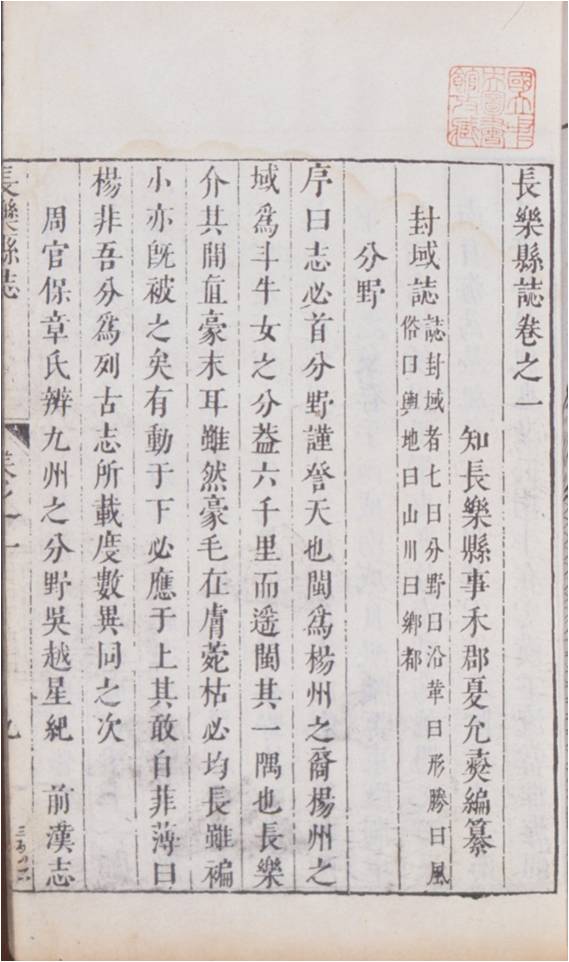 國立中
央圖書
館收藏
長樂縣誌卷之一
知長樂縣事禾郡夏允彝編纂
封域誌
誌封域者七曰分野曰沿革曰形勝曰風
俗曰輿地曰山川曰鄉都
分野
序曰志必首分野謹詧天也閩爲楊州之裔楊州之
域爲斗牛女之分葢六千里而遥閩其一隅也長樂
介其間直豪末耳雖然豪毛在膚菀枯必均長雖褊
小亦旣被之矣有動于下必應于上其敢自菲薄曰
楊非吾分爲列古志所載度數異同之次
周官保章氏辨九州之分野吳越星紀 前漢志
長樂縣志
卷之一
九